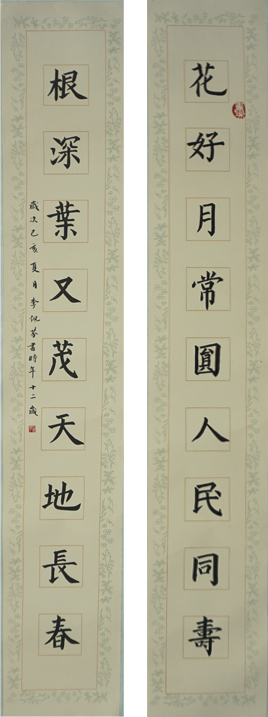 花好月常圓人民同壽
根深葉又茂天地長春
歲次己亥夏月李佩芬書時年十二歲